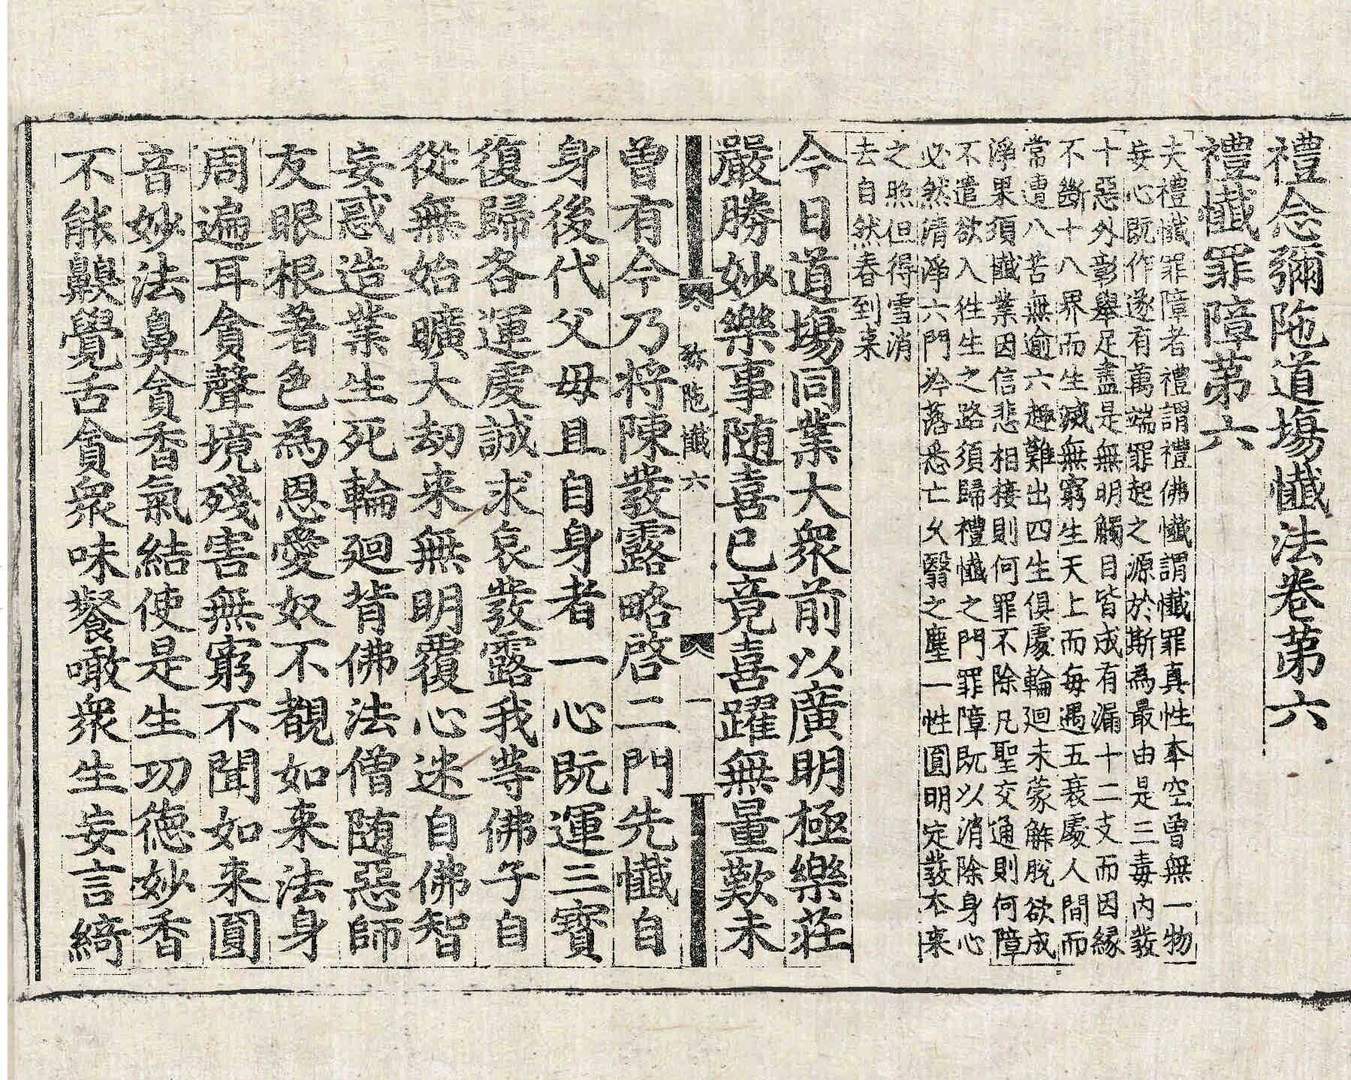 禮念彌陁道場懺法卷第六
禮懺罪障第六
夫禮懺罪障者禮謂禮佛懺謂懺罪真性本空曾無一物
妄心既作遂有萬端罪起之源於斯為最由是三毒內發
十惡外彰舉足盡是無明觸目皆成有漏十二支而因緣
不斷十八界而生滅無窮生天上而每遇五衰處人間而
常遭八苦無逾六趣難出四生俱處輪廻未蒙解脫欲成
淨果須懺業因信悲相接則何罪不除凡聖交通則何障
不遣欲入往生之路須歸禮懺之門罪障既以消除身心
必然清淨六門冰落悉亡幺翳之塵一性圓明定發本來
之照但得雪消
去自然春到来
今日道場同業大衆前以廣明極樂莊
嚴勝妙樂事随喜已竟喜躍無量歎未
弥陁懺六 一
曽有今乃将陳發露略啓二門先懺自
身後代父毋且自身者一心既運三寶
復歸各運虔誠求哀發露我等佛子自
從無始曠大劫来無明覆心迷自佛智
妄惑造業生死輪廻背佛法僧随惡師
友眼根著色為恩愛奴不覩如来法身
周遍耳貪聲境殘害無窮不聞如来圓
音妙法鼻貪香氣結使是生功徳妙香
不能齅覺舌貪衆味餐噉衆生妄言綺